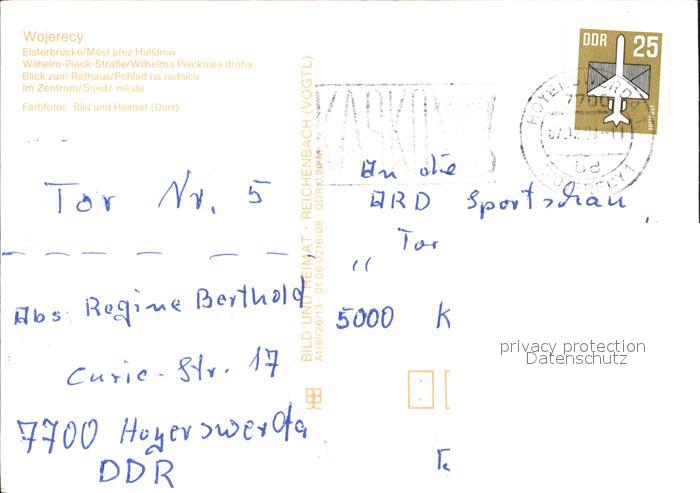 Wojerecy
Elsterbrücke/Móst přez Halštrow
Wilhelm-Pieck-Straße/Wilhelma Pieckowa dróha
Blick zum Rathaus/Pohlad na radnicu
Im Zentrum/Srjedź města
Farbfotos: Bild und Heimat (Darr)
Tor Nr. 5
Abs Regine Berthold
Curie-Str. 17
7700 Hoyerswerda
DDR
BILD UND HEIMAT · REICHENBACH (VOGTL)
A1/III/26/13 · 01 06 0216/08 · DDR 0,20 M
KASKO
DDR 25
HOYERSWERDA 1
7700
bd
WOJERECY 1
An die
ARD Sportschau
"Tor
5000 K
privacy protection
Datenschutz